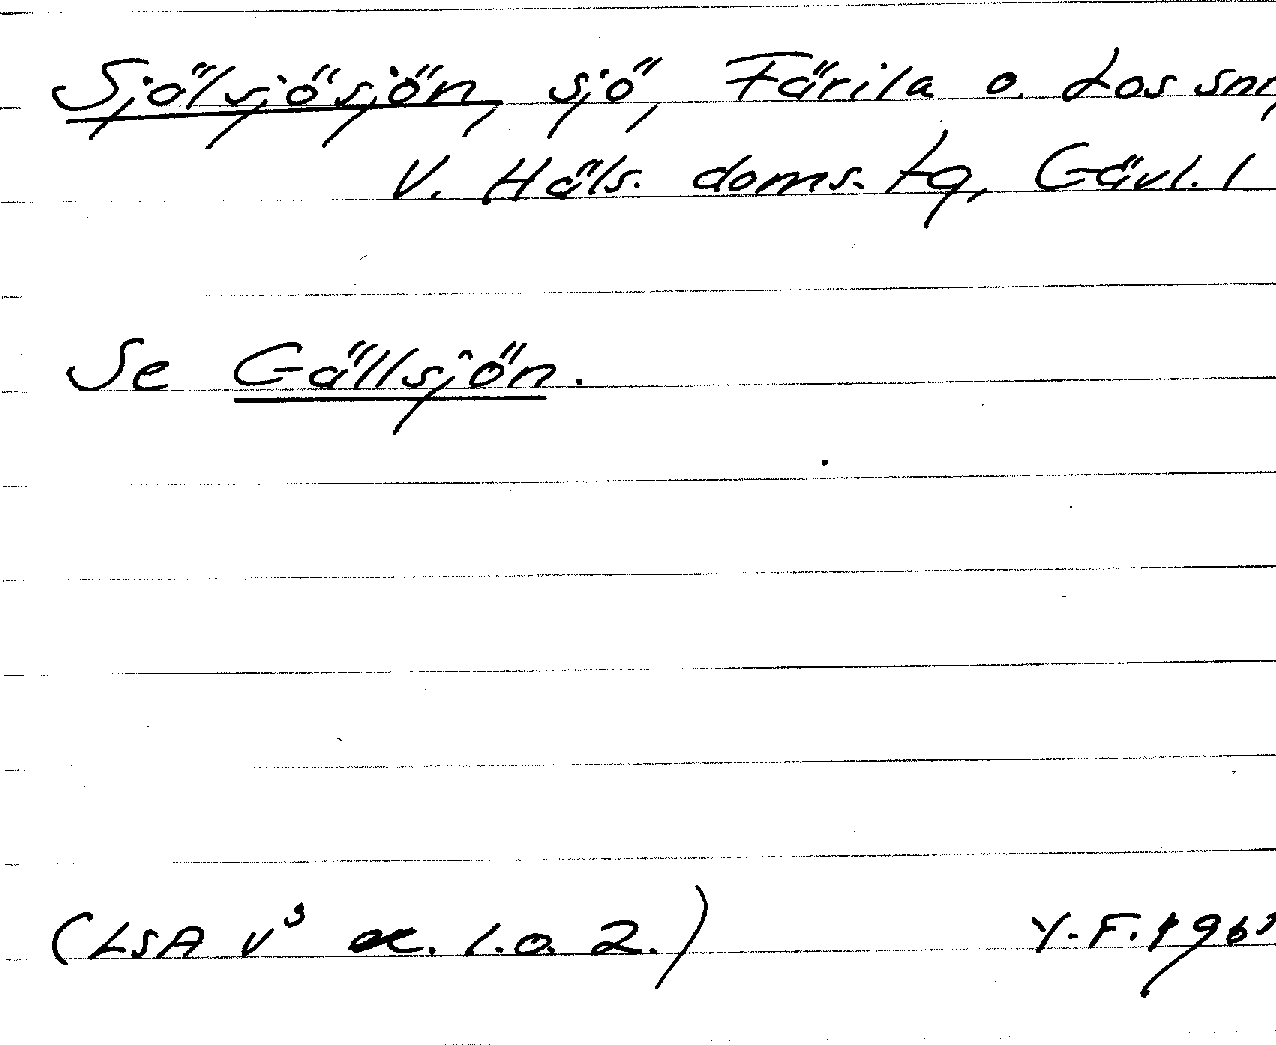 Sjölsjösjön, sjö, Färila o. Los snr,
V. Häls. doms. tg, Gävl. l
Se Gällsjön.
(LSA v³ æ. 1. o. 2.)
Y.F.